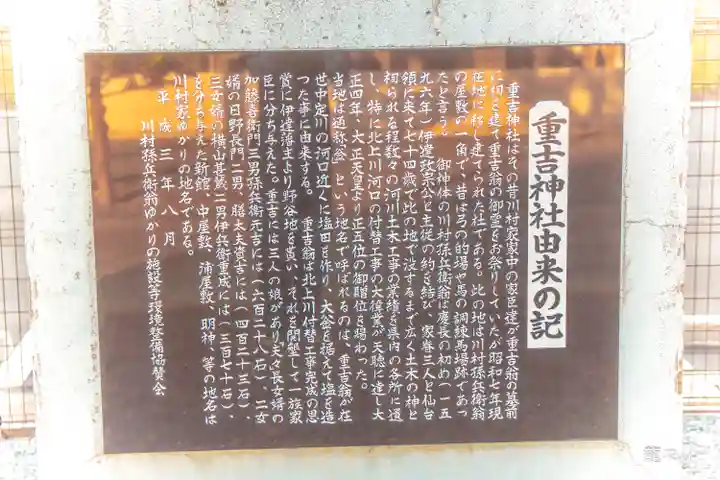 重吉神社由来の記
重吉神社はその昔川村家家中の家臣達が重吉翁の墓前
に祠を建て重吉翁の御霊をお祭りしていたが昭和七年現
在地に移し建てられた社である。此の地は川村孫兵衛翁
の屋敷の一角で、昔は弓の的場や馬の調練馬場跡であっ
たと言う。 御神体の川村孫兵衛翁は慶長の初め(一五
九六年)伊達政宗公と主従の約を結び、家眷三人と仙台
領に来て七十四歳で此の地で没するまで広く土木の神と
祠られる程数々の河川土木工事の業績を県内の各所に遺
し、特に北上川河口の付替工事の大偉業が天聴に達し大
正四年、大正天皇より正五位の御贈位を賜わった。
当地は通称釜という地名で呼ばれるのは、重吉翁が在
世中定川の河口近くに塩田を作り、大釜を据えて塩を造
った事に由来する。 重吉翁は北上川付替工事完成の恩
賞に伊達藩主より野谷地を貰い、それを開墾して一族家
臣に分ち与えた。重吉には三人の娘があり夫々長女婿の
加藤喜衛門三男孫兵衛元吉には(六百二十八石)、二女
婿の日野長門二男、膳太夫賞吉には(四百二十三石)、
三女婿の横山甚蔵二男伊兵衛重成には(三百七十石)、
を分ち与えた新館、中屋敷、浦屋敷、明神、等の地名は
川村家ゆかりの地名である。
平成三年八月
川村孫兵衛翁ゆかりの施設等環境整備協賛会